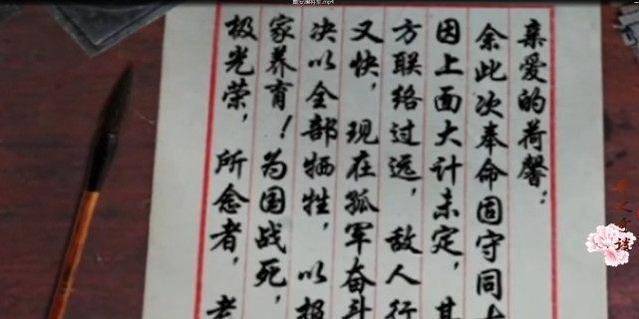 亲爱的荷馨:
余此次奉命固守同
因上面大计未定,其
方联络过远,敌人行
又快,现在孤军奋斗
决以全部牺牲,以报
家养育!为国战死,
极光荣,所念者,老